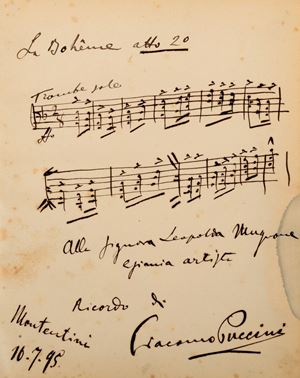 La Bohême atto 2o
Trombe sole
ff
Alla signora Leopolda Mugnone
egregia artista
Ricordo di
Giacomo Puccini
Montecatini
10.7.95.